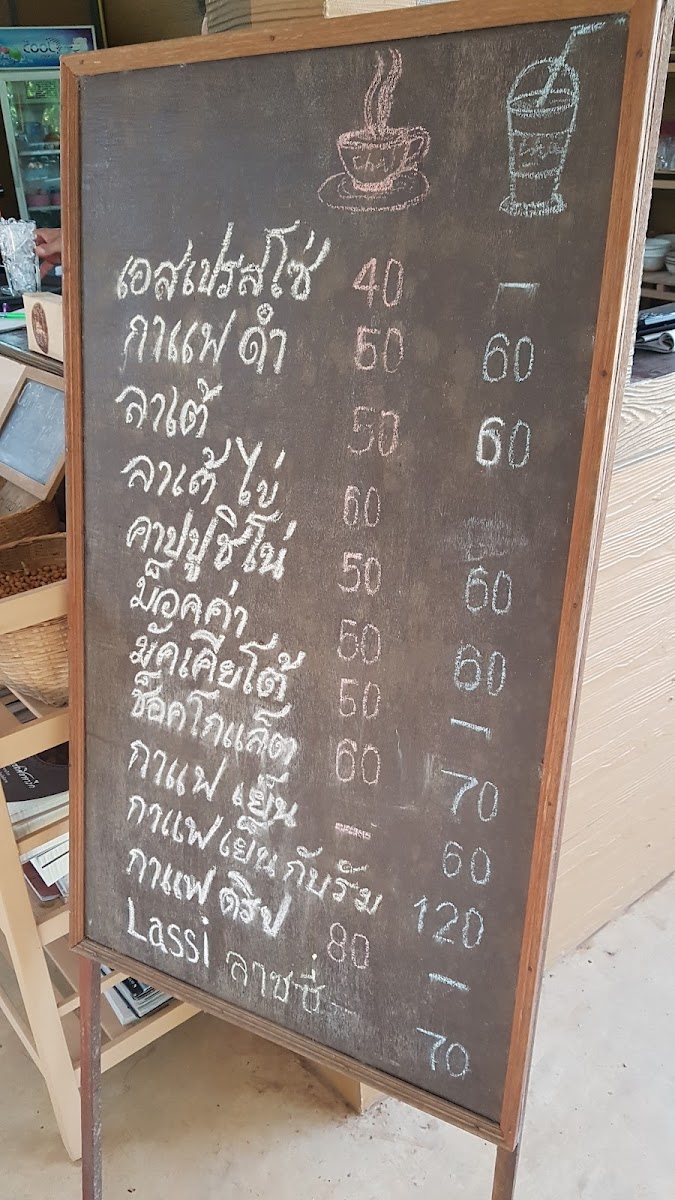 Cool
Chai
เอสเปรสโซ่ 40 —
กาแฟ ดำ 50 60
ลาเต้ 50 60
ลาเต้ ไข่ 60
คาปปูชิโน่ 50 60
ม็อคค่า 50 60
มัคเคียโต้ 50 —
ช็อคโกแล็ต 60 70
กาแฟ เย็น — 60
กาแฟเย็น กับรัม 120
กาแฟ ดริป 80 —
Lassi ลาซซี่ — 70